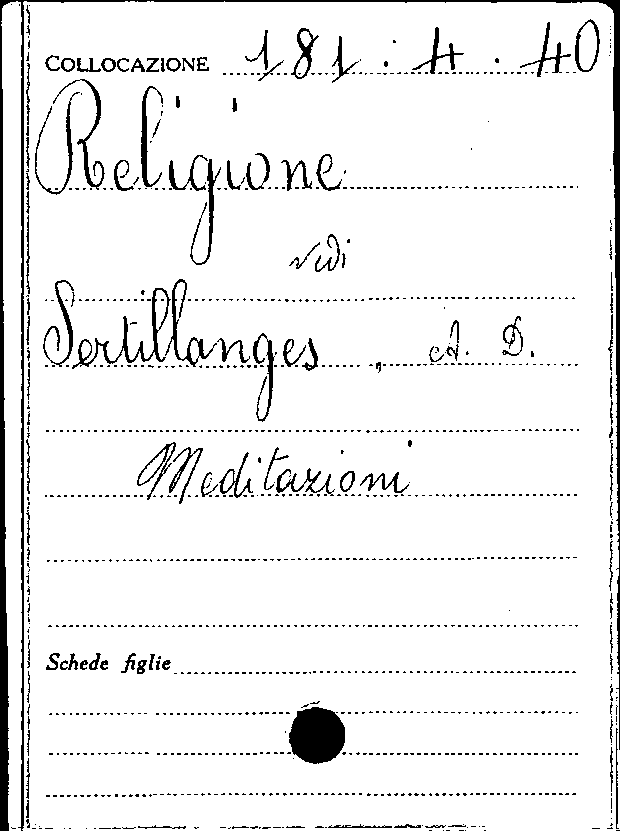 COLLOCAZIONE 181.4.40
Religione
vedi
Sertillanges, A. D.
Meditazioni
Schede figlie